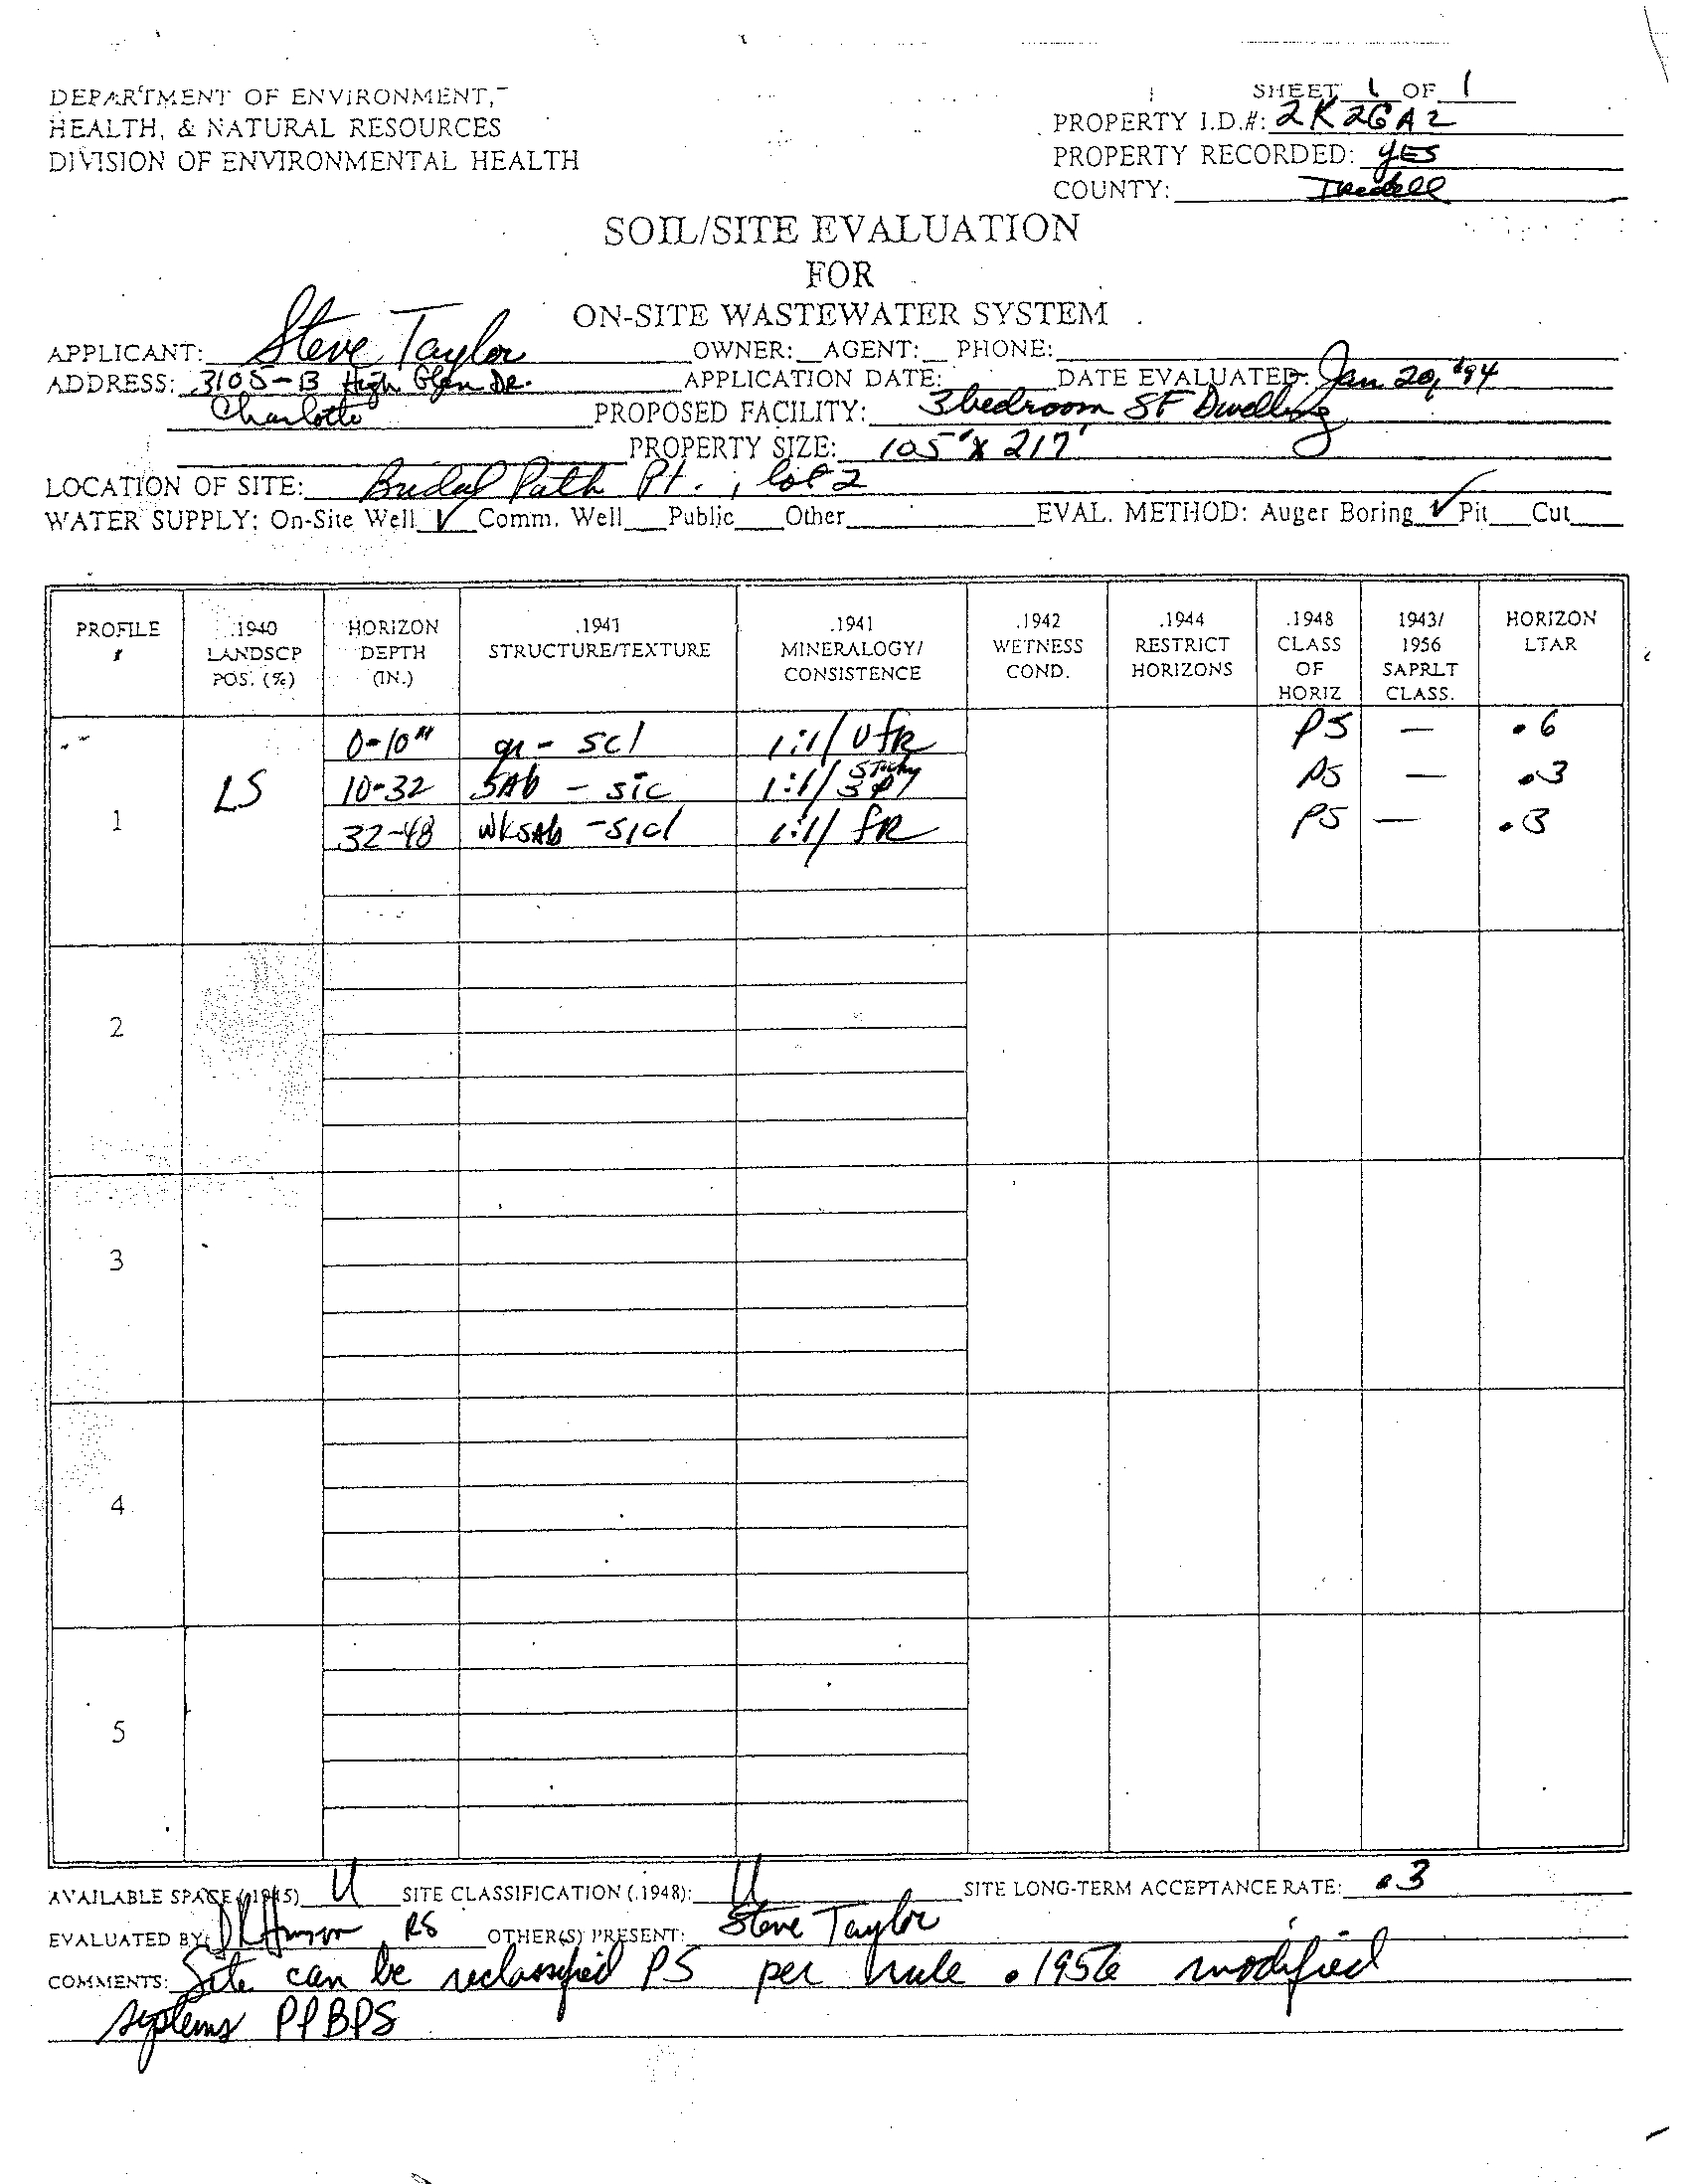 SHEET 1 OF 1
DEPARTMENT OF ENVIRONMENT,
HEALTH, & NATURAL RESOURCES
DIVISION OF ENVIRONMENTAL HEALTH
PROPERTY I.D.#: 2K26A2
PROPERTY RECORDED: YES
COUNTY: Iredell
SOIL/SITE EVALUATION
FOR
ON-SITE WASTEWATER SYSTEM
APPLICANT: Steve Taylor OWNER: AGENT: PHONE:
ADDRESS: 3105-B High Glen DR. APPLICATION DATE: DATE EVALUATED: Jan 20, '94
Charlotte PROPOSED FACILITY: 3 bedroom SF Dwelling
PROPERTY SIZE: 105' X 217'
LOCATION OF SITE: Path Pt. ; lot 2
WATER SUPPLY: On-Site Well ✓ Comm. Well Public Other EVAL. METHOD: Auger Boring ✓ Pit Cut
PROFILE # .1940 LANDSCP POS. (%) HORIZON DEPTH (IN.) .1941 STRUCTURE/TEXTURE .1941 MINERALOGY/ CONSISTENCE .1942 WETNESS COND. .1944 RESTRICT HORIZONS .1948 CLASS OF HORIZ 1943/ 1956 SAPRLT CLASS. HORIZON LTAR
0-10" gr - scl 1:1/ vfR PS — .6
1 LS 10-32 SAb - sic 1:1/ Sticky PS — .3
32-48 wkSAb - sicl 1:1/ fR PS — .3
2
3
4
5
AVAILABLE SPACE (.1945) U SITE CLASSIFICATION (.1948): U SITE LONG-TERM ACCEPTANCE RATE: .3
EVALUATED BY: RS OTHER(S) PRESENT: Steve Taylor
COMMENTS: Site can be reclassified PS per rule .1956 modified
systems PPBPS